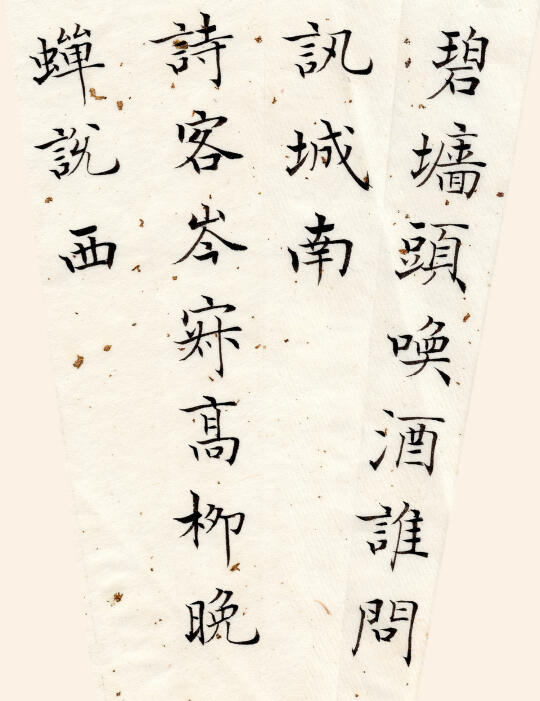 碧墻頭喚酒誰問
訊城南
詩客岑寂髙柳晚
蟬說西